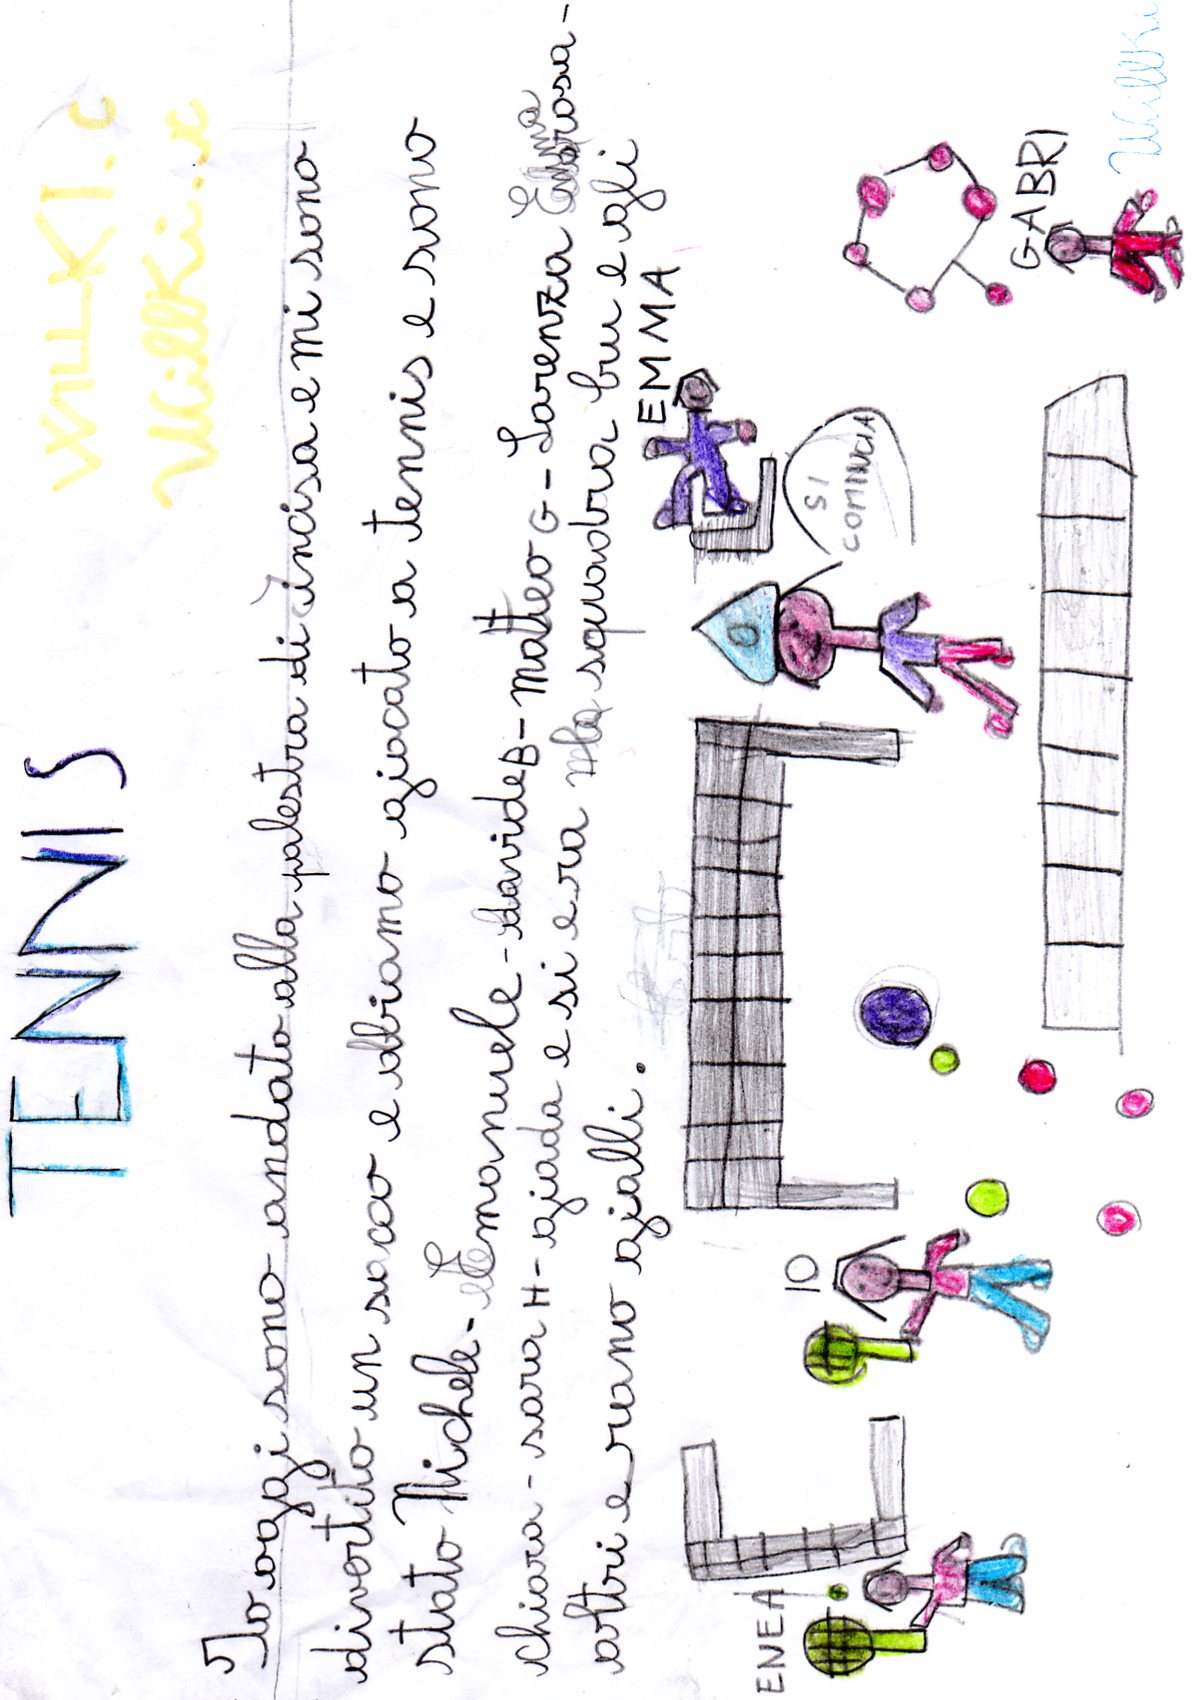 TENNIS
WILLKI.C
Willki.c
Io oggi sono andato alla palestra di incisa e mi sono
divertito un sacco e abbiamo giocato a tennis e sono
stato Michele - Emanuele - davide B - Matteo G - Lorenza Emma
chiara - sara H - giada e si era squadra bu e gli
altri erano gialli.
EMMA
SI
COMINCIA
O
IO
ENEA
GABRI
Willki